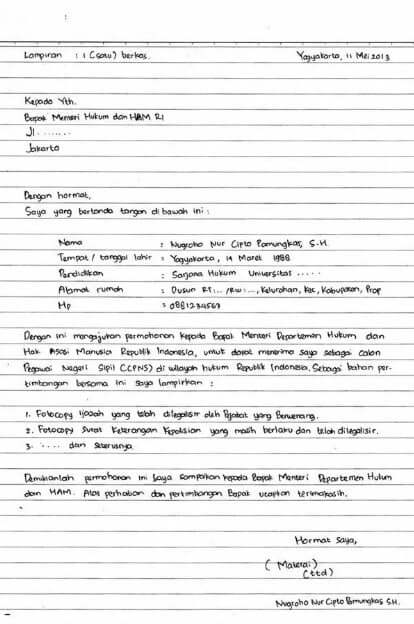 Lampiran : 1 (satu) berkas. Yogyakarta, 11 Mei 2013
Kepada Yth.
Bapak Menteri Hukum dan HAM RI
Jl .......
Jakarta
Dengan hormat,
Saya yang bertanda tangan di bawah ini :
Nama : Nugroho Nur Cipto Pamungkas, S.H.
Tempat / tanggal lahir : Yogyakarta, 14 Maret 1988
Pendidikan : Sarjana Hukum Universitas .....
Alamat rumah : Dusun RT.../RW...., Kelurahan, Kec, Kabupaten, Prop
Hp : 0881234567
Dengan ini mengajukan permohonan kepada Bapak Menteri Departemen Hukum dan
Hak Asasi Manusia Republik Indonesia, untuk dapat menerima saya sebagai calon
Pegawai Negeri Sipil (CPNS) di wilayah hukum Republik Indonesia. Sebagai bahan per-
timbangan bersama ini saya lampirkan :
1. Fotocopy ijasah yang telah dilegalisir oleh Pejabat yang Berwenang.
2. Fotocopy Surat Keterangan Kepolisian yang masih berlaku dan telah dilegalisir.
3. .... dan seterusnya
Demikianlah permohonan ini saya sampaikan kepada Bapak Menteri Departemen Hukum
dan HAM. Atas perhatian dan pertimbangan Bapak ucapkan terimakasih.
Hormat Saya,
( Materai )
(ttd)
Nugroho Nur Cipto Pamungkas S.H.